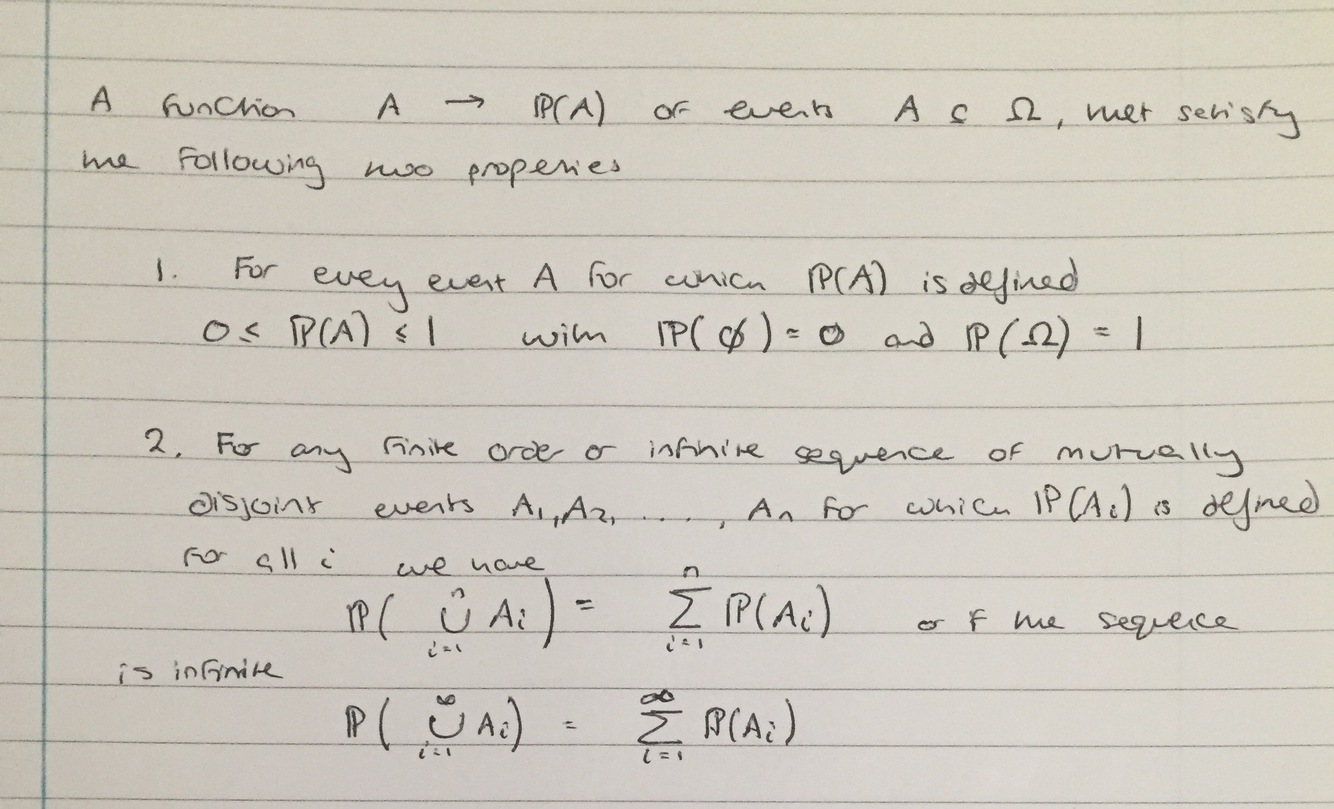 A function A → ℙ(A) of events A ⊆ Ω, that satisfy
the following two properties
1. For every event A for which ℙ(A) is defined
0 ≤ ℙ(A) ≤ 1 with ℙ(∅) = 0 and ℙ(Ω) = 1
2. For any finite order or infinite sequence of mutually
disjoint events A₁, A₂, ...., Aₙ for which ℙ(Aᵢ) is defined
for all i we have
ℙ( ⋃ᵢ₌₁ⁿ Aᵢ ) = ∑ᵢ₌₁ⁿ ℙ(Aᵢ) or if the sequence
is infinite
ℙ( ⋃ᵢ₌₁^∞ Aᵢ) = ∑ᵢ₌₁^∞ ℙ(Aᵢ)